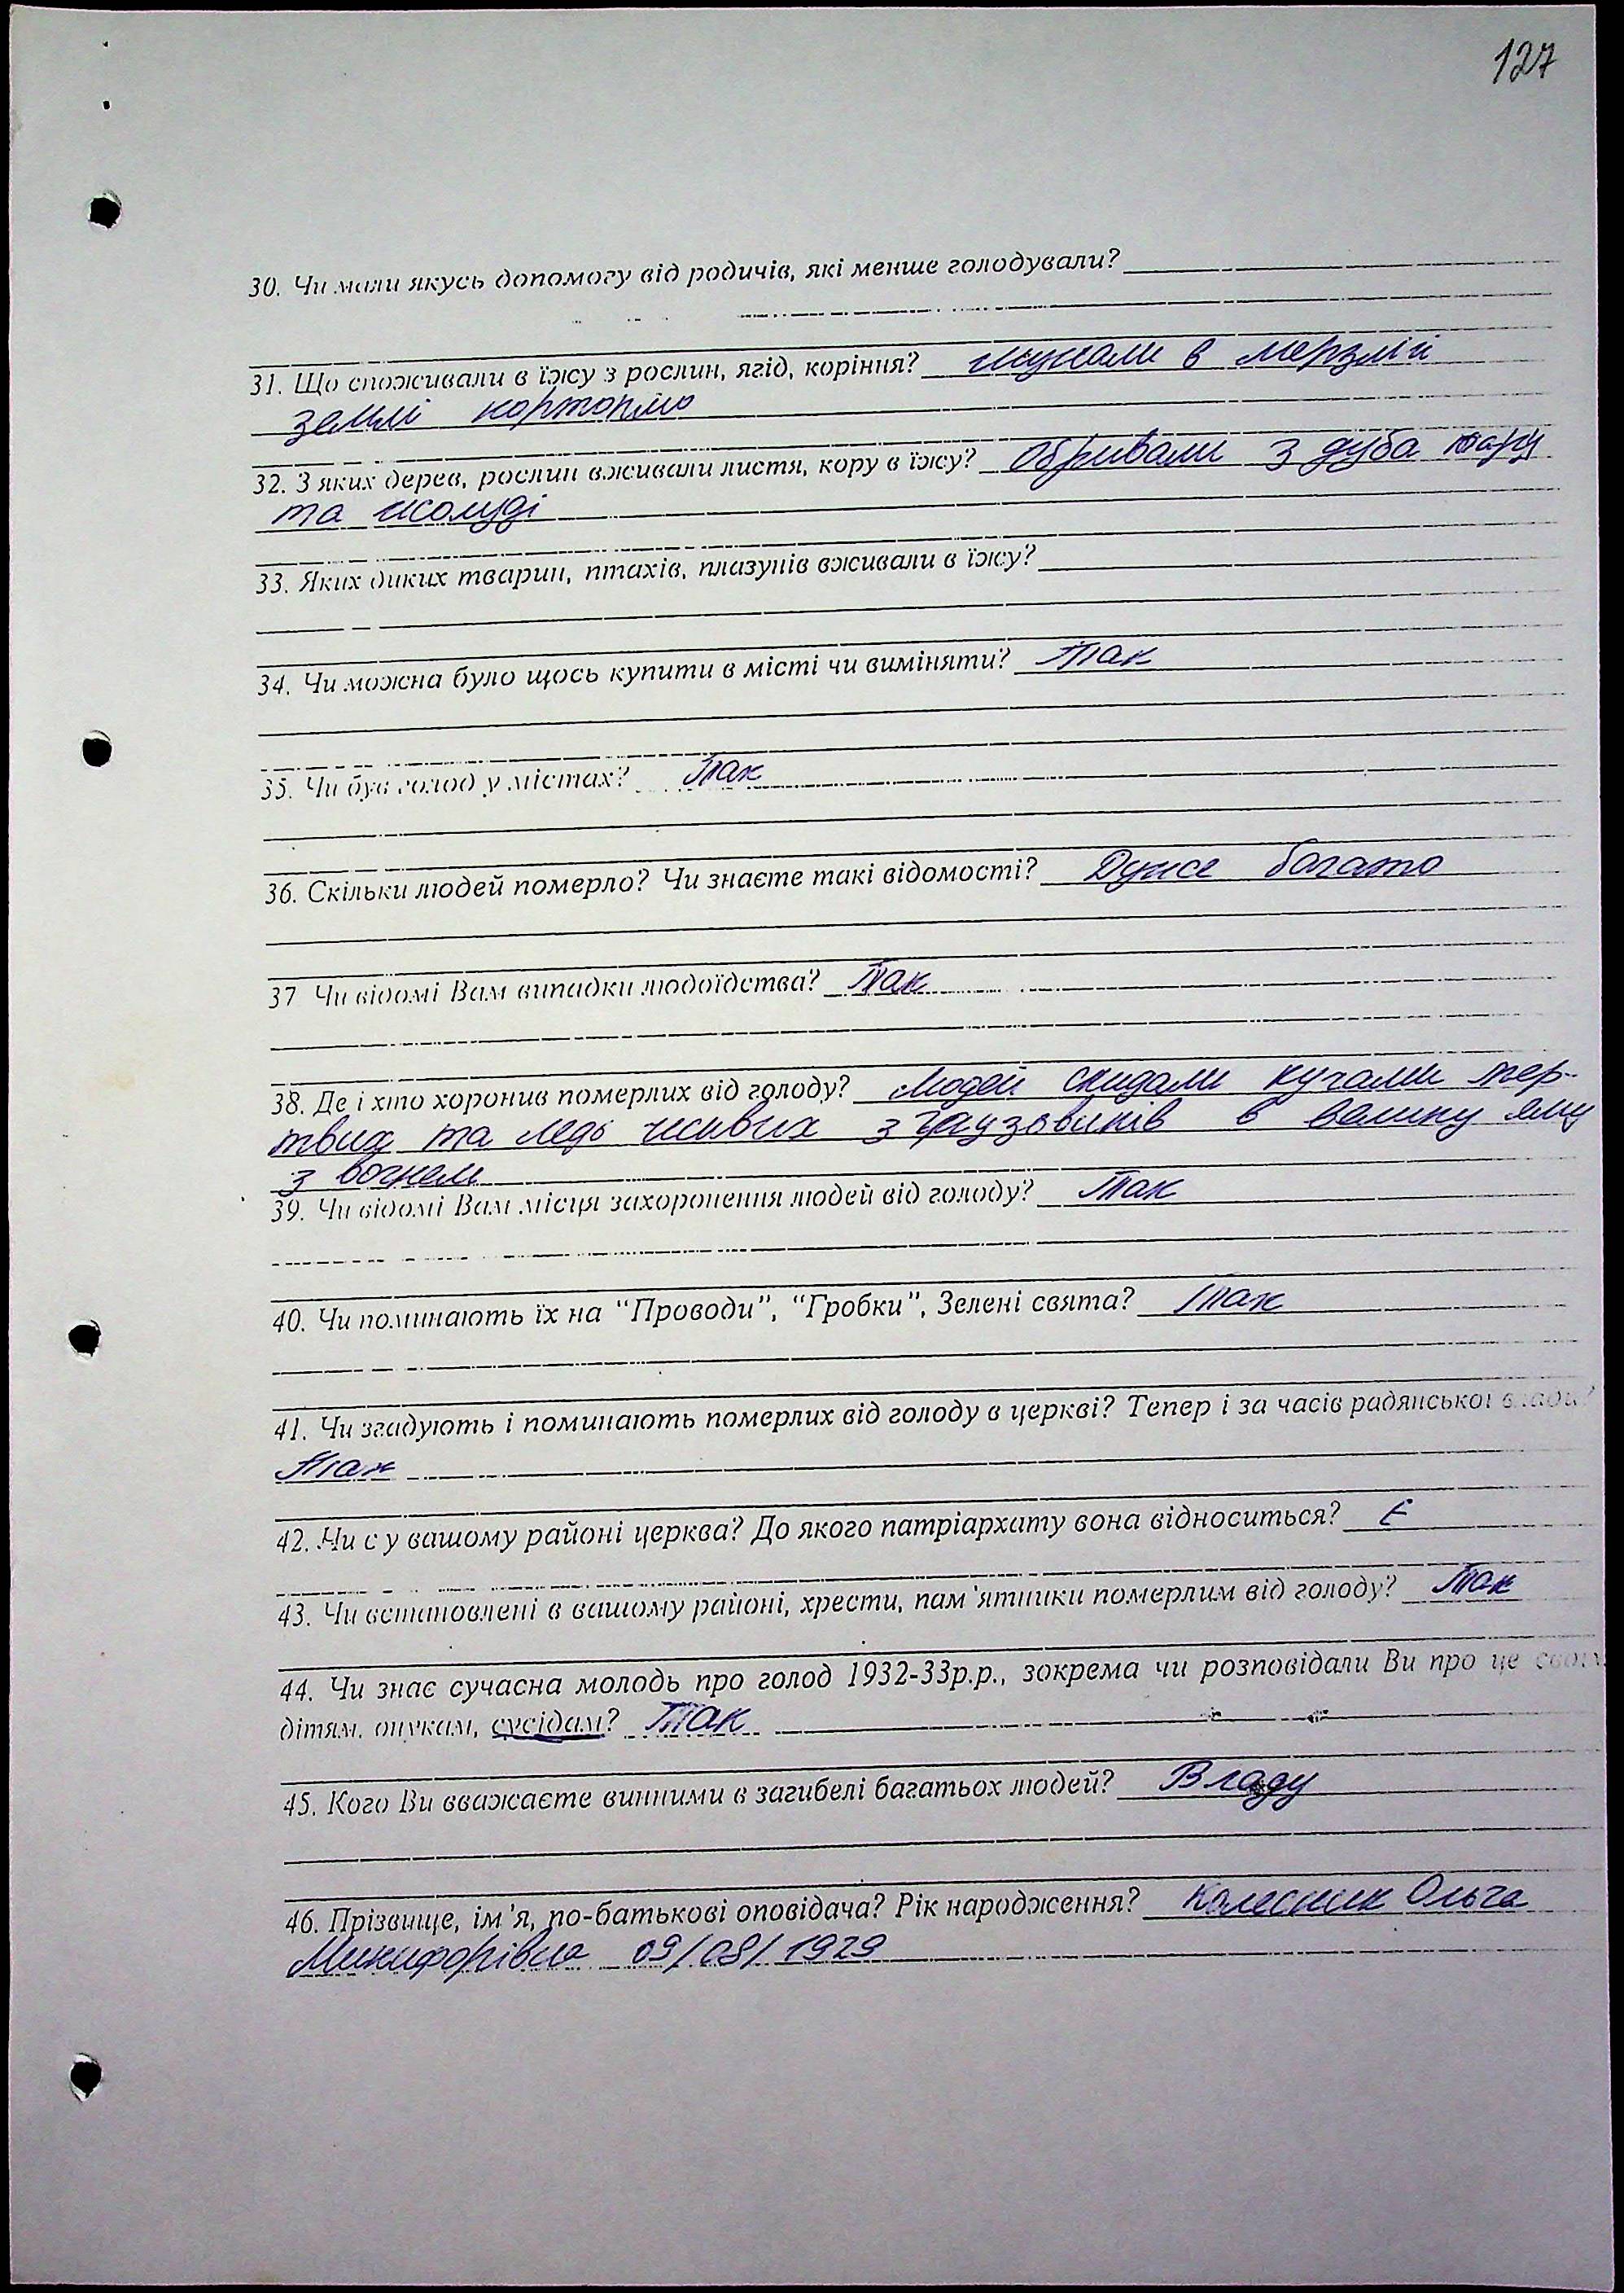 127
30. Чи мали якусь допомогу від родичів, які менше голодували?
31. Що споживали в їжу з рослин, ягід, коріння? шукали в мерзлій
землі картоплю
32. З яких дерев, рослин вживали листя, кору в їжу? обривали з дуба кору
та жолуді
33. Яких диких тварин, птахів, плазунів вживали в їжу?
34. Чи можна було щось купити в місті чи виміняти? Так
35. Чи був голод у містах? Так
36. Скільки людей померло? Чи знаєте такі відомості? Дуже багато
37 Чи відомі Вам випадки людоїдства? Так
38. Де і хто хоронив померлих від голоду? Людей скидали кучами мер-
твих та ледь живих з грузовиків в велику яму
з вогнем
39. Чи відомі Вам місця захоронення людей від голоду? Так
40. Чи поминають їх на “Проводи”, “Гробки”, Зелені свята? Так
41. Чи згадують і поминають померлих від голоду в церкві? Тепер і за часів радянської влади?
Так
42. Чи є у вашому районі церква? До якого патріархату вона відноситься? Є
43. Чи встановлені в вашому районі, хрести, пам’ятники померлим від голоду? Так
44. Чи знає сучасна молодь про голод 1932-33р.р., зокрема чи розповідали Ви про це своїм
дітям, онукам, сусідам? Так
45. Кого Ви вважаєте винними в загибелі багатьох людей? Владу
46. Прізвище, ім’я, по-батькові оповідача? Рік народження? Колесник Ольга
Микифорівна 09/08/1929